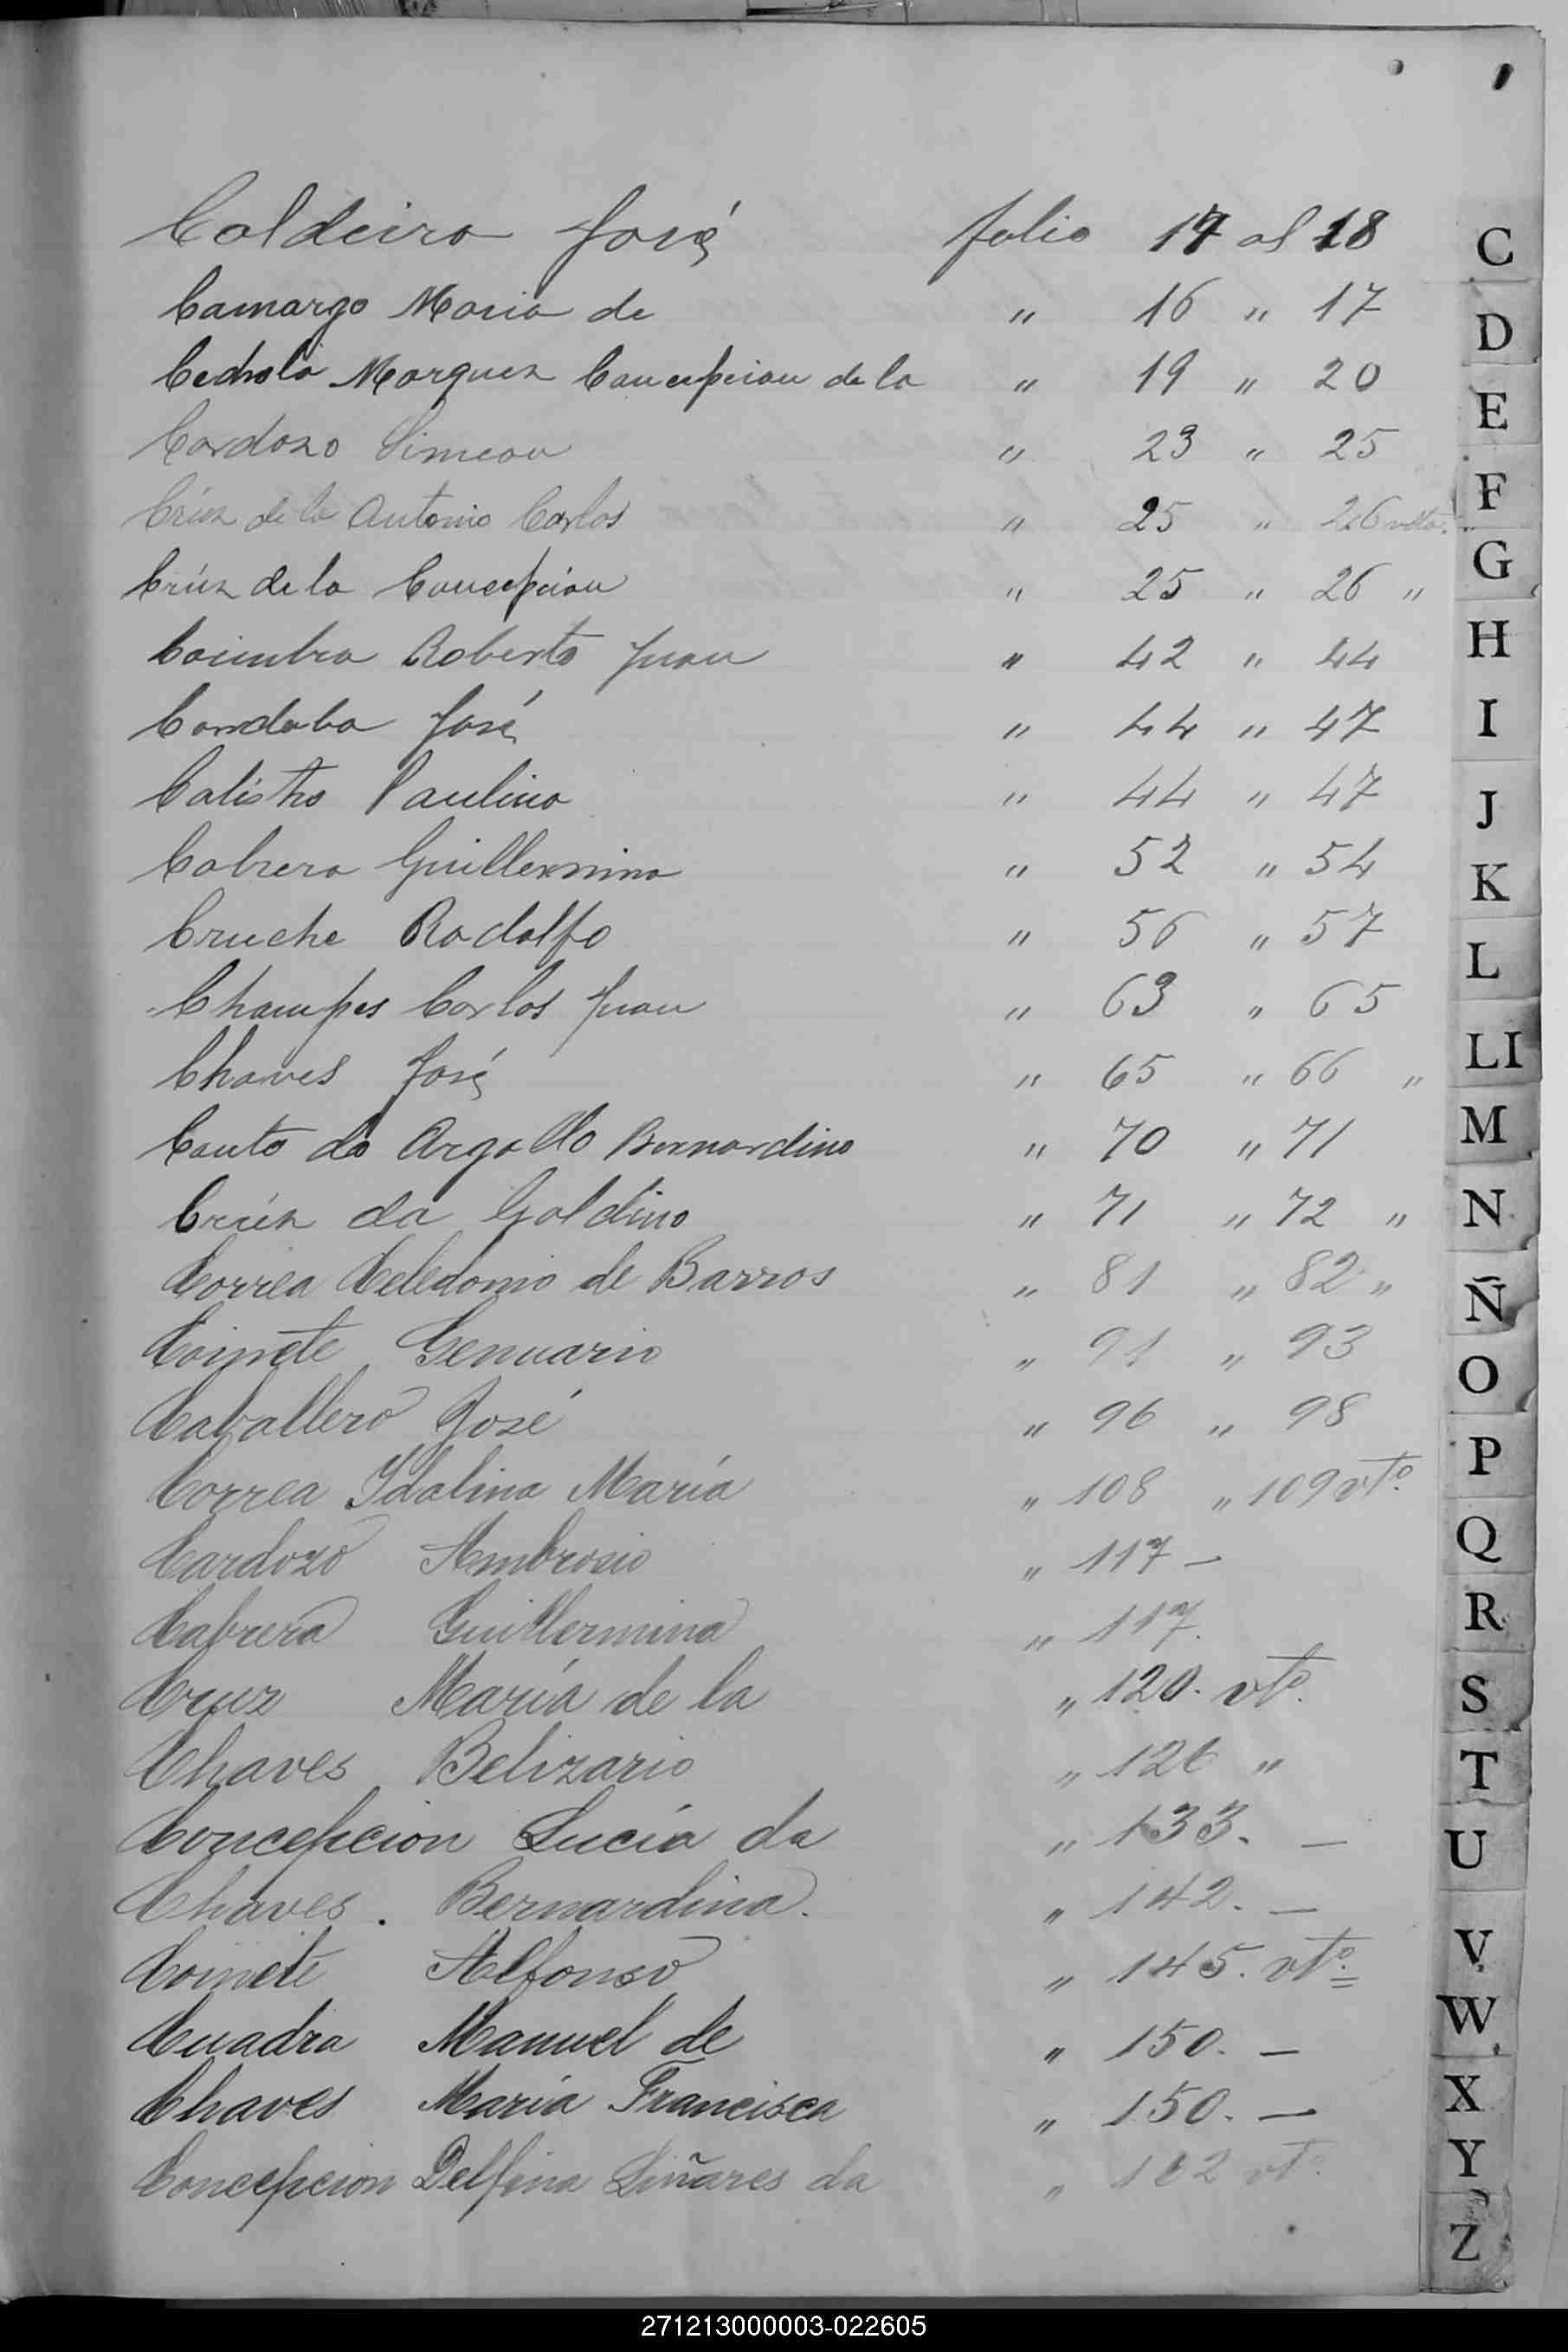 Caldeira José folio 17 al 18
Camargo Maria de " 16 " 17
Cedrola Marquez Concepcion de la " 19 " 20
Cardozo Simeon " 23 " 25
Crúz de la Antonio Carlos " 25 " 26 vto.
Crúz de la Concepcion " 25 " 26 "
Coimbra Roberto Juan " 42 " 44
Cordoba José " 44 " 47
Calistro Paulino " 44 " 47
Cabrera Guillermina " 52 " 54
Cruche Rodolfo " 56 " 57
Champes Carlos Juan " 63 " 65
Chaves José " 65 " 66 "
Couto do Argollo Bernardino " 70 " 71
Crúz da Galdino " 71 " 72 "
Correa Celedonio de Barros " 81 " 82 "
Coinete Genuario " 91 " 93
Caballero José " 96 " 98
Correa Idalina María " 108 " 109 vto.
Cardozo Ambrosio " 117 —
Cabrera Guillermina " 117.
Cruz María de la " 120. vto.
Chaves Belizario " 126 "
Concepcion Lucía da " 133. —
Chaves. Bernardina. " 142. —
Coinete Alfonso " 145. vto.
Cuadra Manuel de " 150. —
Chaves María Francisca " 150. —
Concepcion Delfina Liñares da " vto.
C
D
E
F
G
H
I
J
K
L
Ll
M
N
Ñ
O
P
Q
R
S
T
U
V
W
X
Y
Z
271213000003-022605